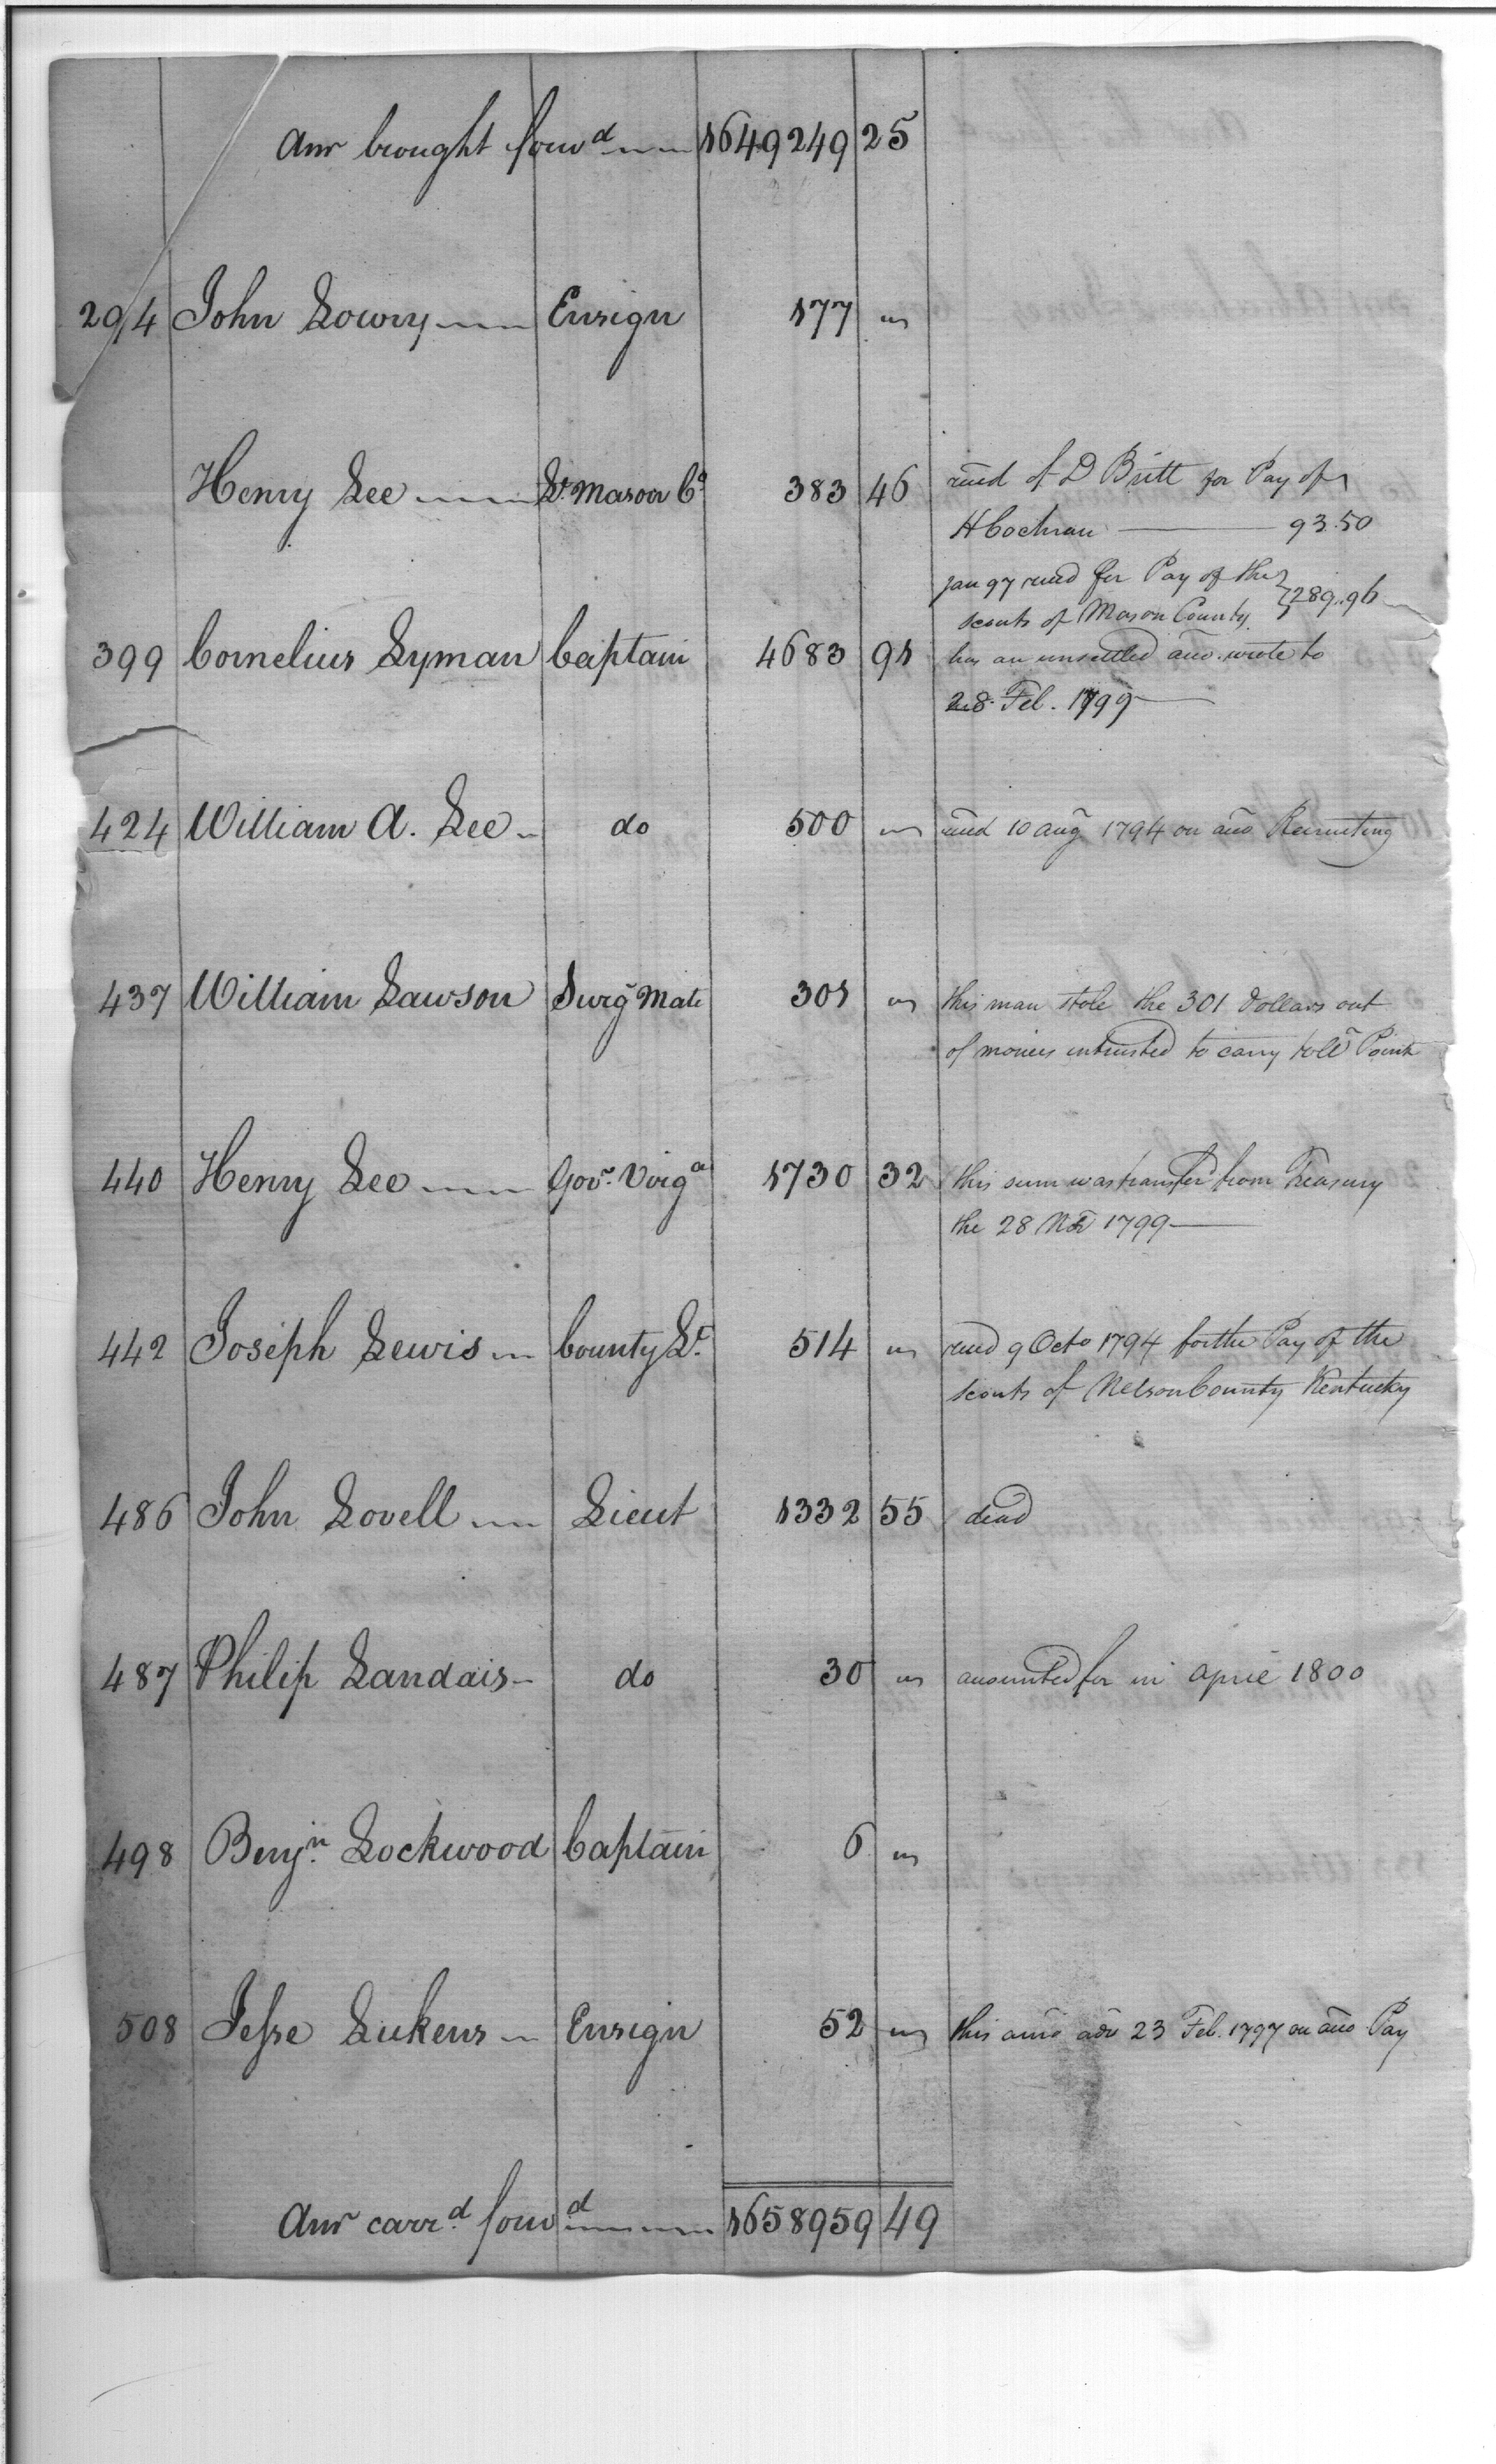 Amt brought forwd 1649249 25
294 John Lowry Ensign 177
Henry Lee Lt. Mason Co 383 46 recd of D Britt for Pay of
H Cochran 93.50
Jan 97 recd for Pay of the
scouts of Mason County 289.96
399 Cornelius Lyman Captain 4683 91 has an unsettled acco. wrote to
28 Feb. 1799
424 William A. Lee do 500 recd 10 Aug 1794 on acco Recruiting
437 William Lawson Surg Mate 301 this man stole the 301 dollars out
of monies intrusted to carry to Wt Point
440 Henry Lee Govr. Virga 1730 32 this sum was transferd from Treasury
the 28 1799
442 Joseph Lewis County Lt. 514 recd 9 Octo 1794 for the Pay of the
scouts of Nelson County Kentucky
486 John Lovell Lieut 1332 55 dead
487 Philip Landais do 30 accounted for in April 1800
498 Benjn. Lockwood Captain 6
508 Jesse Lukens Ensign 52 this amt adv 23 Feb. 1797 on acco Pay
Amt carrd. forwd 1658959 49